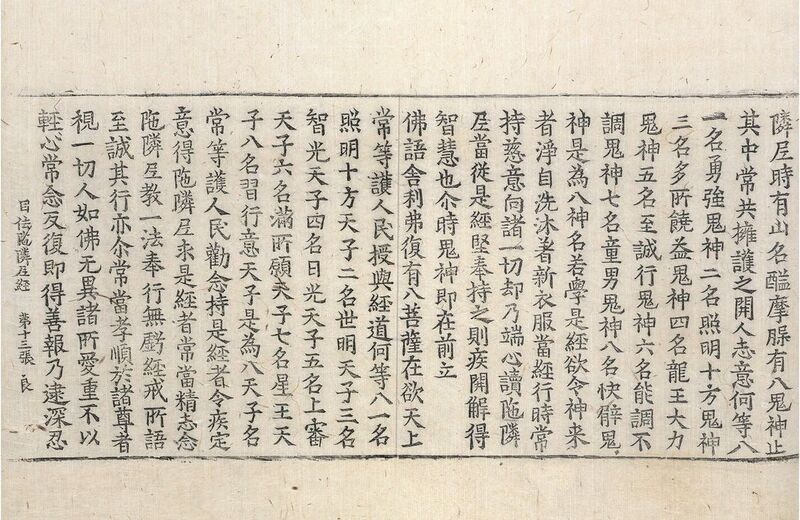 隣𡰱時有山名醯摩臊有八鬼神止
其中常共擁護之開人志意何等八
一名勇強鬼神二名照明十方鬼神
三名多所饒益鬼神四名龍王大力
鬼神五名至誠行鬼神六名能調不
調鬼神七名童男鬼神八名快臂鬼
神是為八神名若學是經欲令神来
者淨自洗沐著新衣服當經行時常
持慈意向諸一切却乃端心讀陁隣
𡰱當從是經堅奉持之則疾開解得
智慧也尒時鬼神即在前立
佛語舍利弗復有八菩薩在欲天上
常等護人民授與經道何等八一名
照明十方天子二名世明天子三名
智光天子四名日光天子五名上審
天子六名滿所願天子七名星王天
子八名習行意天子是為八天子名
常等護人民勸念持是經者令疾定
意得陁隣𡰱求是經者常當精志念
陁隣𡰱教一法奉行無虧經戒所語
至誠其行亦尒常當孝順於諸尊者
視一切人如佛无異諸所愛重不以
輕心常念反復即得善報乃逮深忍
目佉陁隣𡰱經 第十三張 良